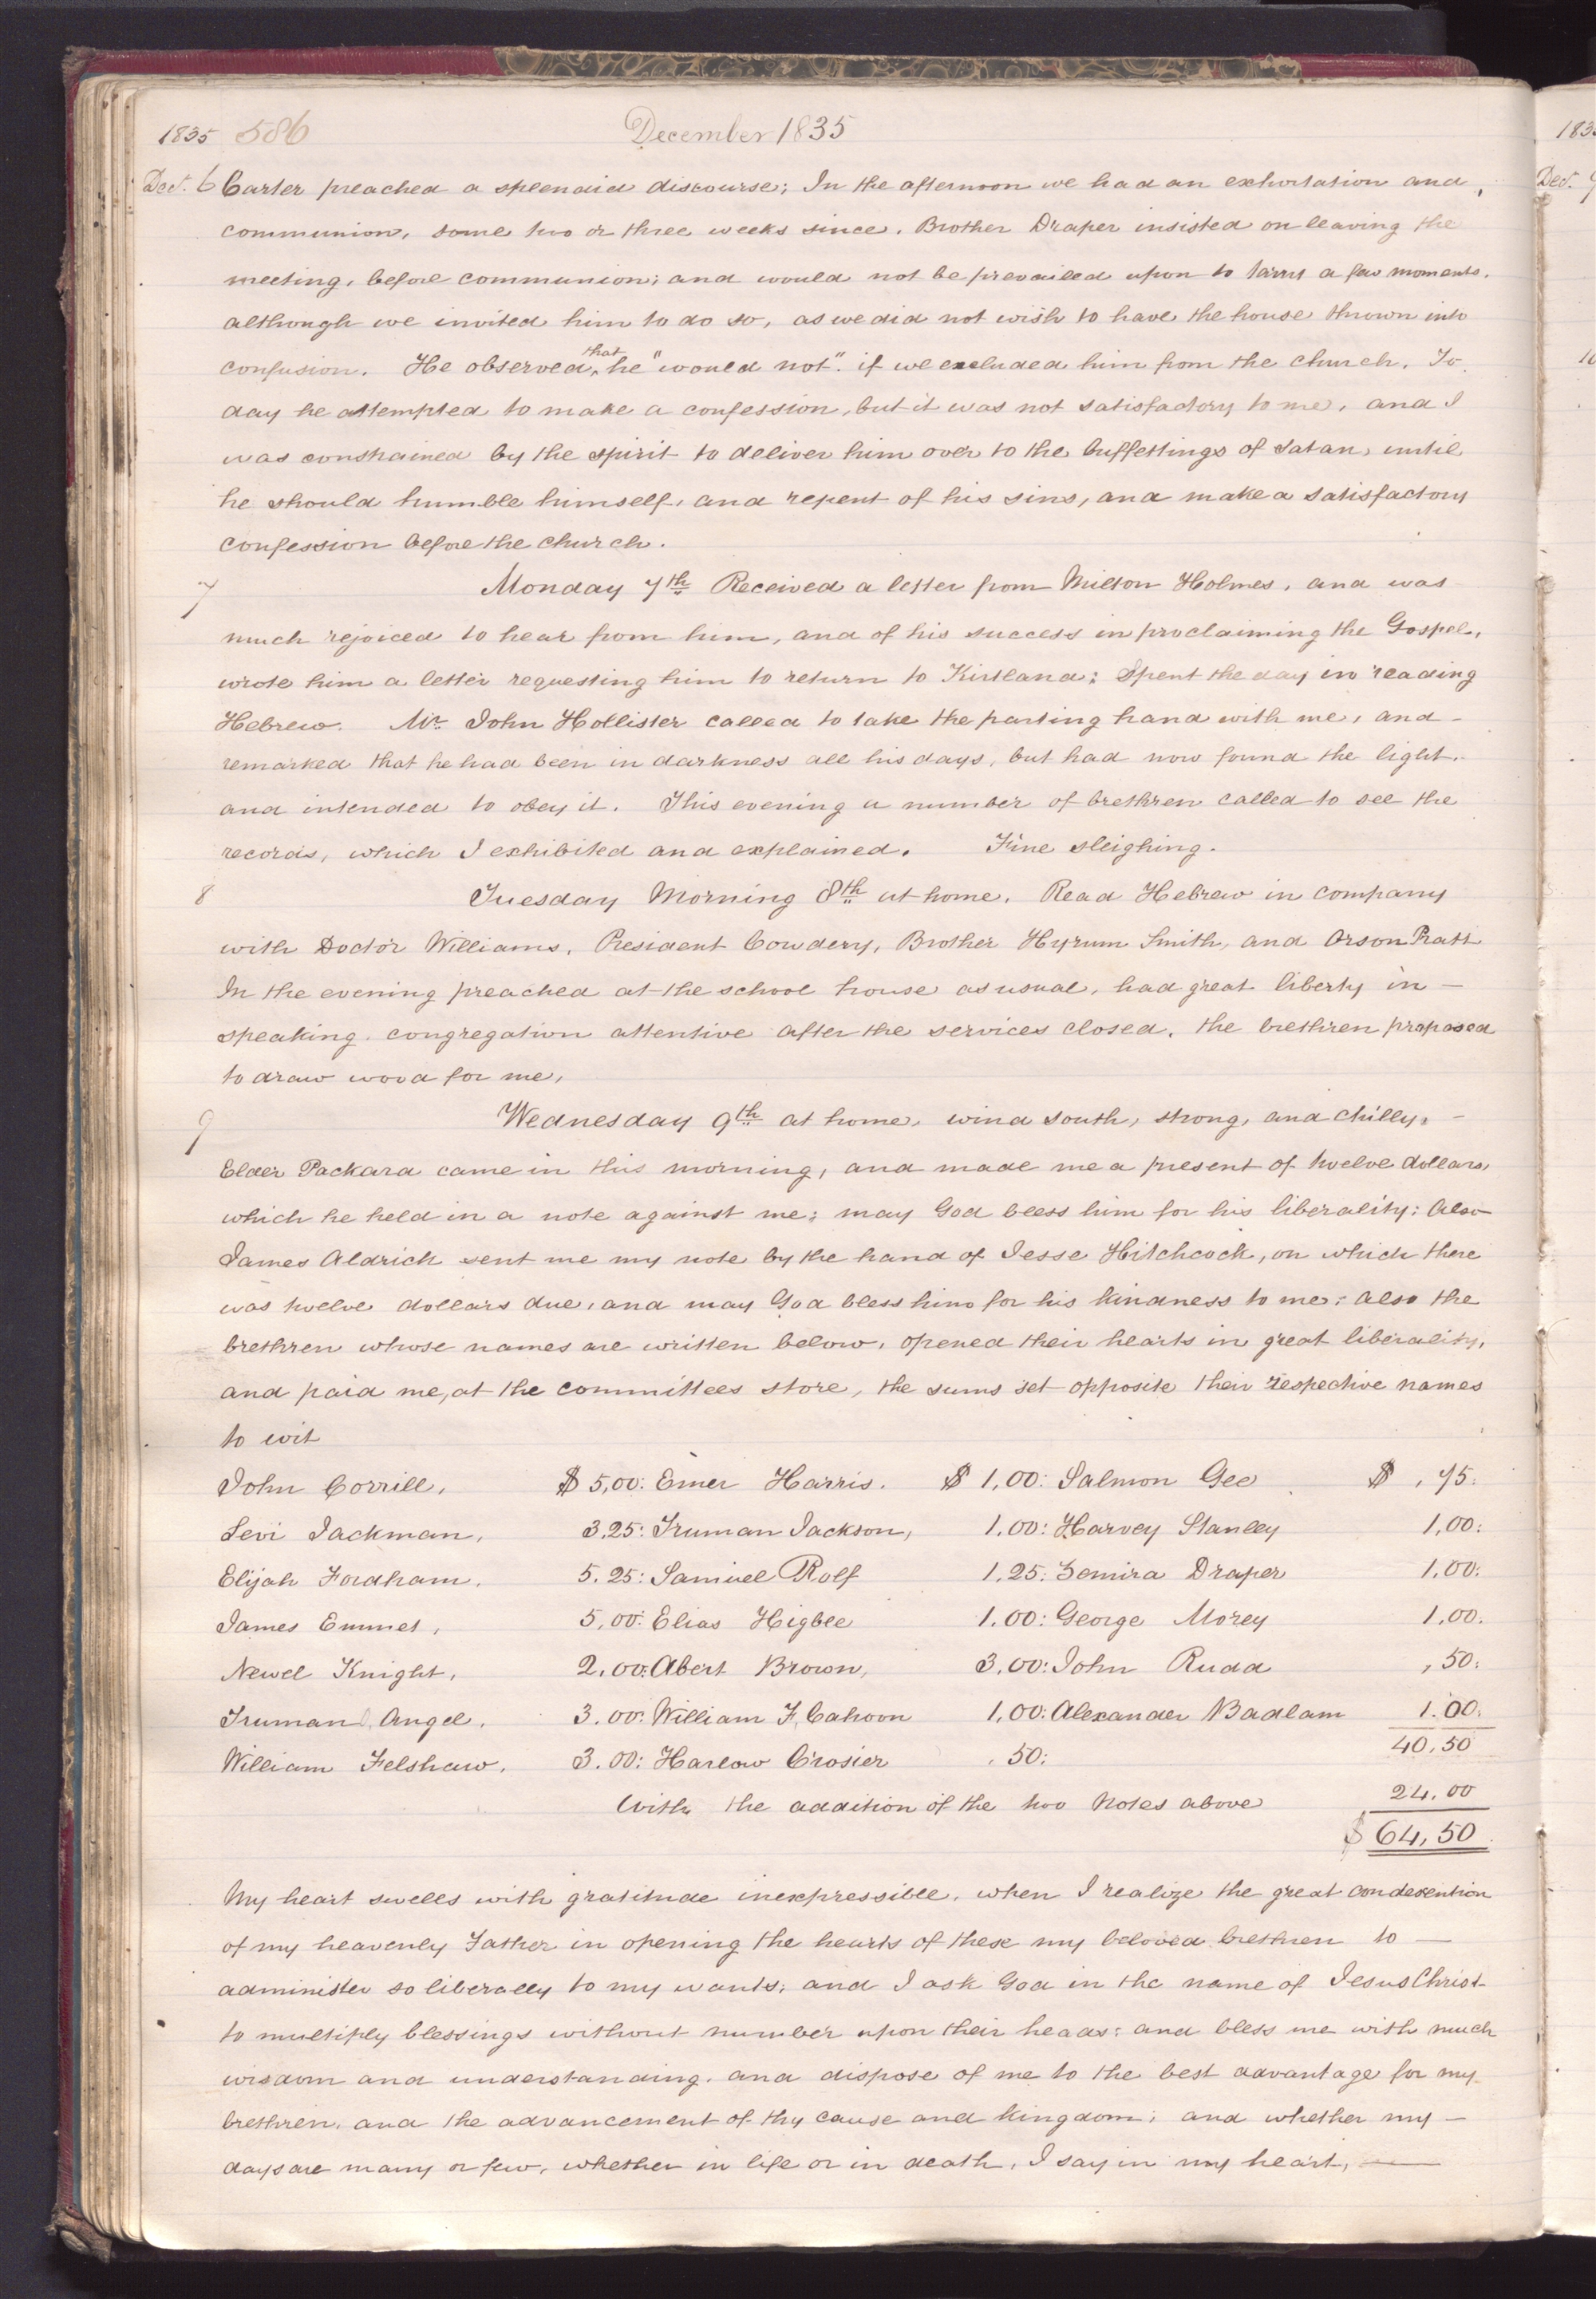 1835 586 December 1835
Dec. 6 Carter preached a splendid discourse; In the afternoon we had an exhortation and,
communion, some two or three weeks since. Brother Draper insisted on leaving the
meeting, before communion; and would not be prevailed upon to tarry a few moments.
although we invited him to do so, as we did not wish to have the house thrown into
confusion. He observed, that he "would not". if we excluded him from the church. To
day he attempted to make a confession, but it was not satisfactory to me, and I
was constrained by the spirit to deliver him over to the buffettings of Satan, until
he should humble himself, and repent of his sins, and make a satisfactory
confession before the church.
7 Monday 7th Received a letter from Milton Holmes, and was
much rejoiced to hear from him, and of his success in proclaiming the Gospel,
wrote him a letter requesting him to return to Kirtland: Spent the day in reading
Hebrew. Mr John Hollister called to take the parting hand with me, and -
remarked that he had been in darkness all his days, but had now found the light.
and intended to obey it. This evening a number of brethren called to see the
records, which I exhibited and explained. Fine sleighing.
8 Tuesday Morning 8th at home. Read Hebrew in company
with Doctor Williams, President Cowdery, Brother Hyrum Smith, and Orson Pratt
In the evening preached at the school house as usual, had great liberty in -
speaking. congregation attentive after the services closed, the brethren proposed
to draw wood for me,
9 Wednesday 9th at home, wind south, strong, and chilly, -
Elder Packard came in this morning, and made me a present of twelve dollars,
which he held in a note against me; may God bless him for his liberality: Also
James Aldrich sent me my note by the hand of Jesse Hitchcock, on which there
was twelve dollars due, and may God bless him for his kindness to me: also the
brethren whose names are written below, opened their hearts in great liberality,
and paid me, at the committees store, the sums set opposite their respective names
to wit
John Corrill, $ 5,00: Emer Harris. $ 1,00: Salmon Gee $ ,75:
Levi Jackman, 3,25: Truman Jackson, 1,00: Harvey Stanley 1,00:
Elijah Fordham, 5.25: Samuel Rolf 1,25: Zemira Draper 1,00:
James Emmet, 5,00: Elias Higbee 1.00: George Morey 1,00.
Newel Knight, 2,00: Abert Brown, 3,00: John Rudd ,50:
Truman, Angel, 3.00: William F, Cahoon 1,00: Alexander Badlam 1.00:
William Felshaw, 3.00: Harlow Crosier .50: 40,50
With the addition of the two Notes above 24,00
$ 64,50
My heart swells with gratitude inexpressible, when I realize the great condesention
of my heavenly Father in opening the hearts of these my beloved brethren to —
administer so liberally to my wants; and I ask God in the name of Jesus Christ
to multiply blessings without number upon their heads: and bless me with much
wisdom and understanding. and dispose of me to the best advantage for my
brethren. and the advancement of thy cause and kingdom; and whether my —
days are many or few, whether in life or in death, I say in my heart, ——